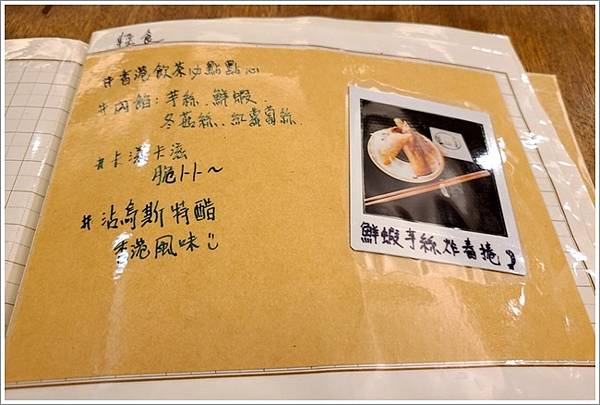 輕食
#香港飲茶ㄉ點點心
#內餡：芋絲、鮮蝦、
冬菇絲、紅蘿蔔絲
#卡滋卡滋
脆卜卜~
#沾烏斯特醋
香港風味
鮮蝦芋絲炸春捲